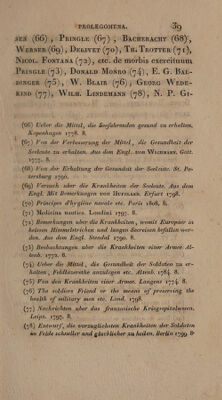 PROLEGOMENA. 39
SEN (66), PRINGLE (67), BACHERACHT (68),
WERNER (69), DELIVET (70), TH. TROTTER (71),
NICOL. FONTANA (72), etc. de morbis exercituum
PRINGLE (73), DONALD MONRO (74), E. G. BAL-
DINGER (75), W. BLAIR (76), GEORG WEDE-
KIND (77), WILH. LINDEMANN (78), N. P. GI-
(66) Ueber die Mittel, die Seefahrenden gesund zu erhalten.
Kopenhagen 1778. 8.
(67) Von der Verbesserung der Mittel, die Gesundheit der
Seeleute zu erhalten. Aus dem Engl. von WICHMANN. Gött.
1775. 8.
(68) Von der Erhaltung der Gesundheit der Seeleute. St. Pe-
tersburg 1790. 8.
(69) Versuch über die Krankheiten der Seeleute. Aus dem
Engl. Mit Bemerkungen von HUFELAND. Erfurt 1798. 8.
(70) Principes d'hygiène navale etc. Paris 1808. 8.
(71) Medicina nautica. Londini 1797. 8.
(72) Bemerkungen über die Krankheiten, womit Europäer in
heissen Himmelstrichen und langen Seereisen befallen wer-
den. Aus dem Engl. Stendal 1790. 8.
(73) Beobachtungen über die Krankheiten einer Armee. Al-
tenb. 1772. 8.
(74) Ueber die Mittel, die Gesundheit der Soldaten zu er-
halten, Feldlazarethe anzulegen etc. Altenb. 1784. 8.
(75) Von den Krankheiten einer Armee. Langens 1774. 8.
(76) The soldiers Friend or the means of preserving the
health of military men etc. Lond. 1798.
(77) Nachrichten über das französische Kriegsspitalwesen.
Leipz. 1797. 8.
(78) Entwurf, die vorzüglichsten Krankheiten der Soldaten
im Felde schneller und glücklicher zu heilen. Berlin 1799 8.